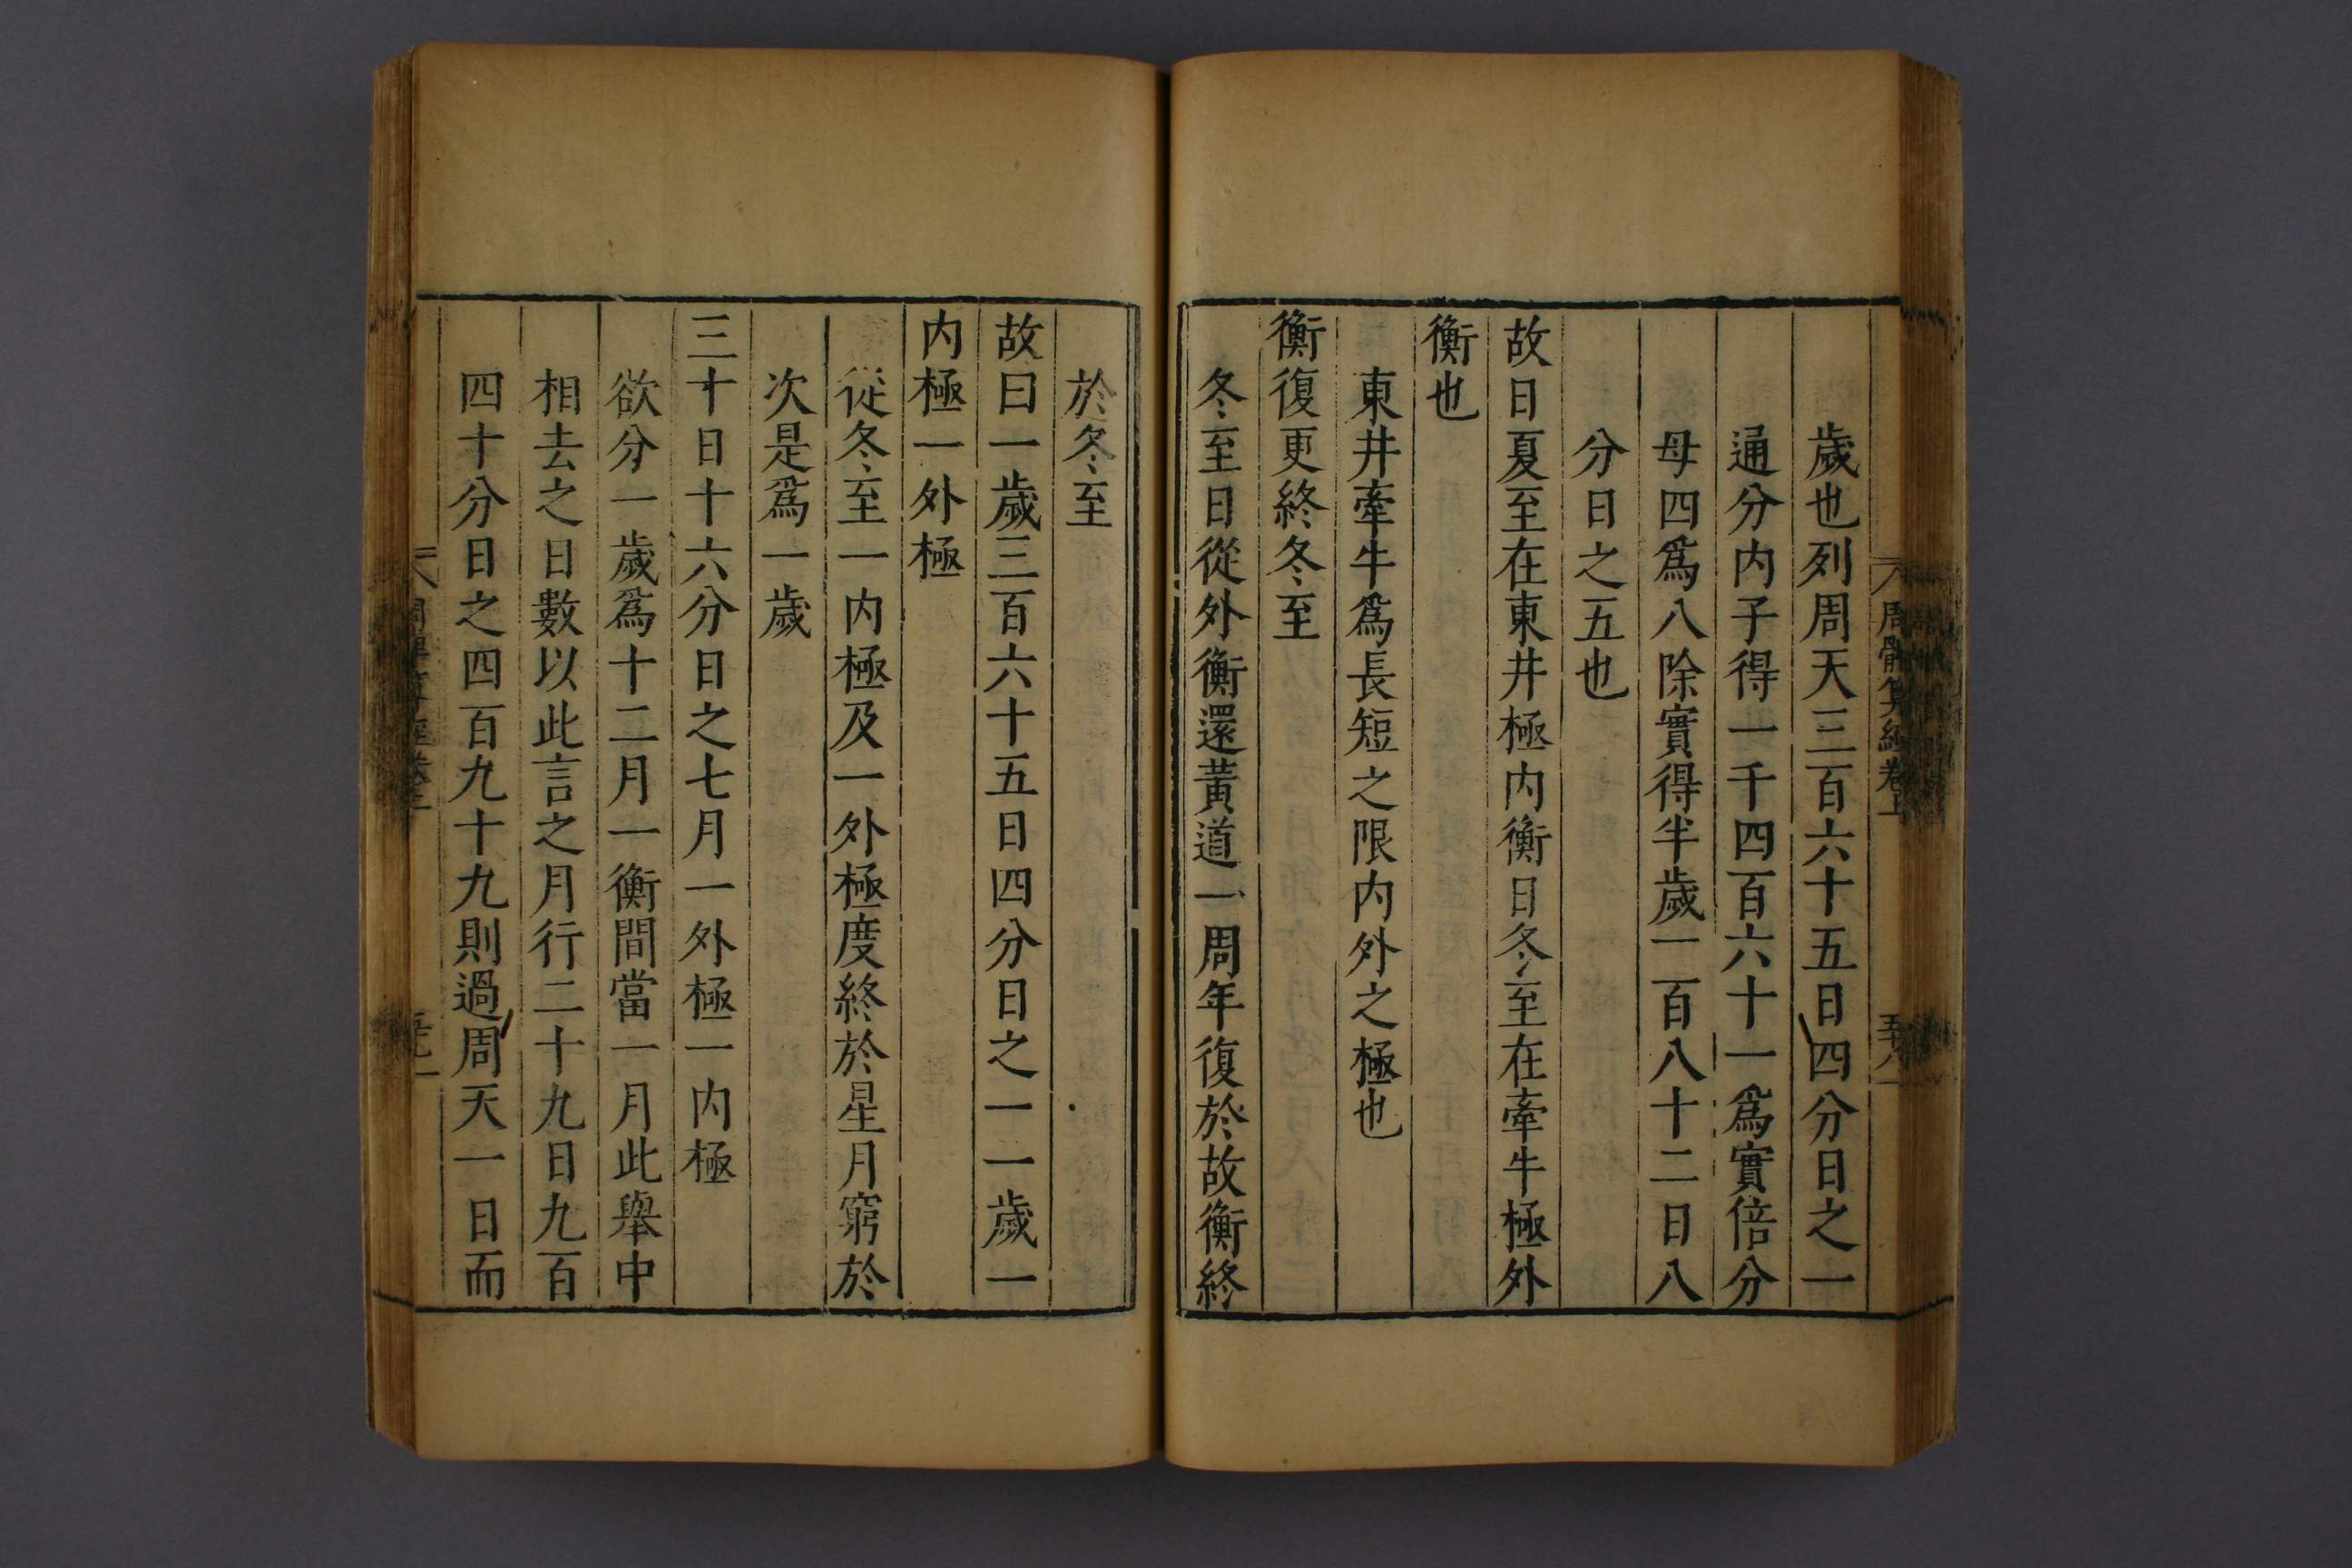 周髀算經卷上
五十八
歲也列周天三百六十五日四分日之一
通分内子得一千四百六十一爲實倍分
母四爲八除實得半歲一百八十二日八
分日之五也
故日夏至在東井極内衡日冬至在牽牛極外
衡也
東井牽牛爲長短之限内外之極也
衡復更終冬至
冬至日從外衡還黄道一周年復於故衡終
於冬至
故曰一歲三百六十五日四分日之一一歲一
内極一外極
從冬至一内極及一外極度終於星月窮於
次是爲一歲
三十日十六分日之七月一外極一内極
欲分一歲爲十二月一衡間當一月此舉中
相去之日數以此言之月行二十九日九百
四十分日之四百九十九則過周天一日而